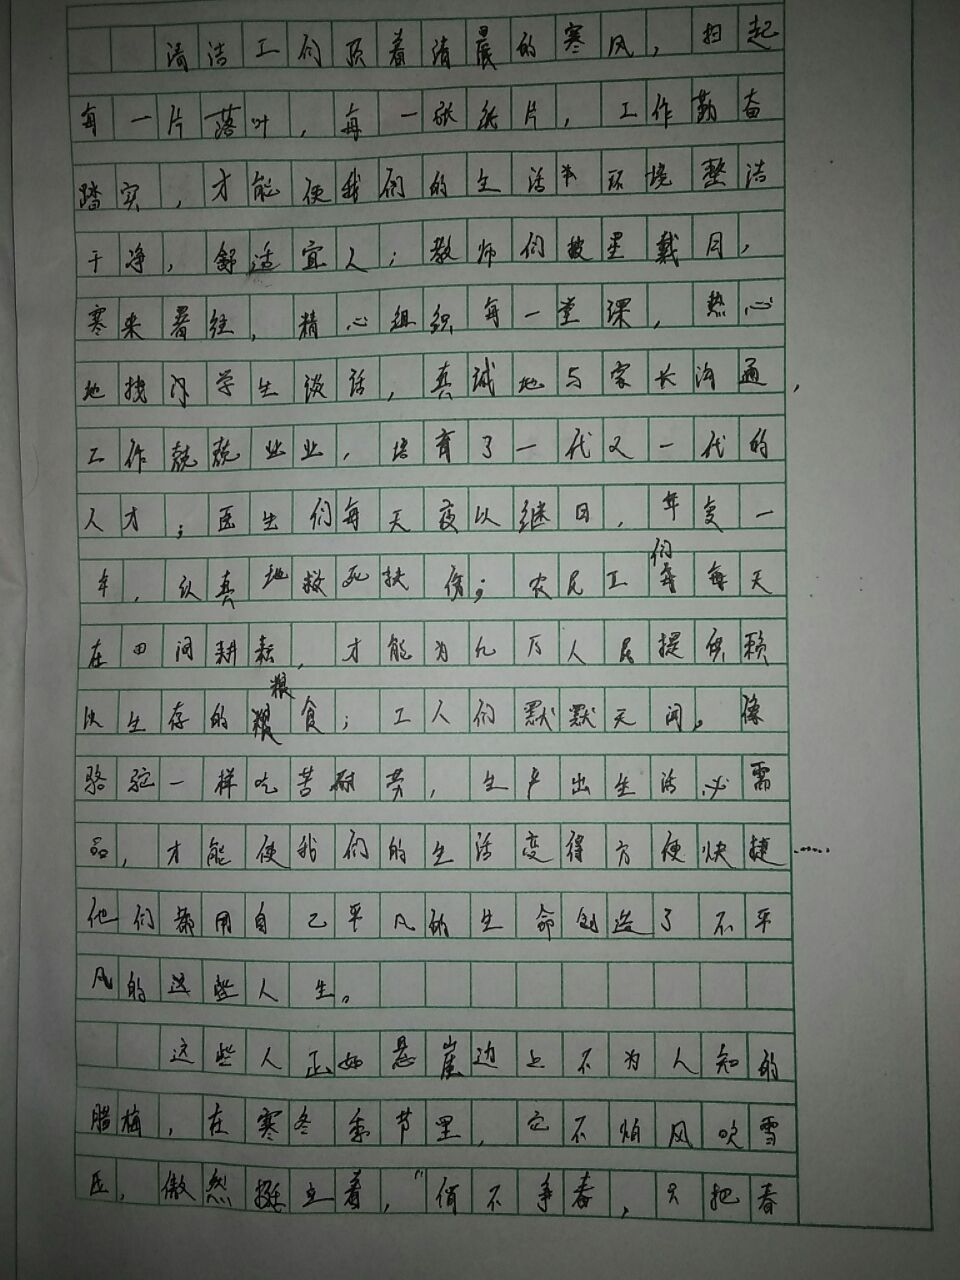 清洁工们顶着清晨的寒风，扫起
每一片落叶，每一张纸片，工作勤奋
踏实，才能使我们的生活环境整洁
干净，舒适宜人；教师们披星戴月，
寒来暑往，精心组织每一堂课，热心
地找问学生谈话，真诚地与家长沟通，
工作兢兢业业，培育了一代又一代的
人才；医生们每天夜以继日，年复一
年，认真地救死扶伤；农民工们每天
在田间耕耘，才能为亿万人民提供赖
以生存的粮食；工人们默默无闻。像
骆驼一样吃苦耐劳，生产出生活必需
品，才能使我们的生活变得方便快捷……
他们都用自己平凡的生命创造了不平
凡的这些人生。
这些人正如悬崖边上不为人知的
腊梅，在寒冬季节里，它不怕风吹雪
压，傲然挺立着，“俏不争春，只把春